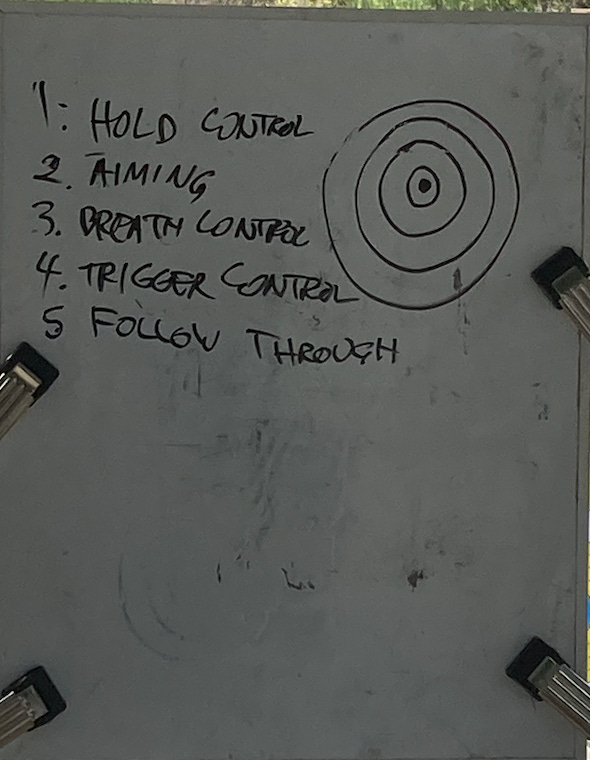 1: HOLD CONTROL
2. AIMING
3. BREATH CONTROL
4. TRIGGER CONTROL
5 FOLLOW THROUGH